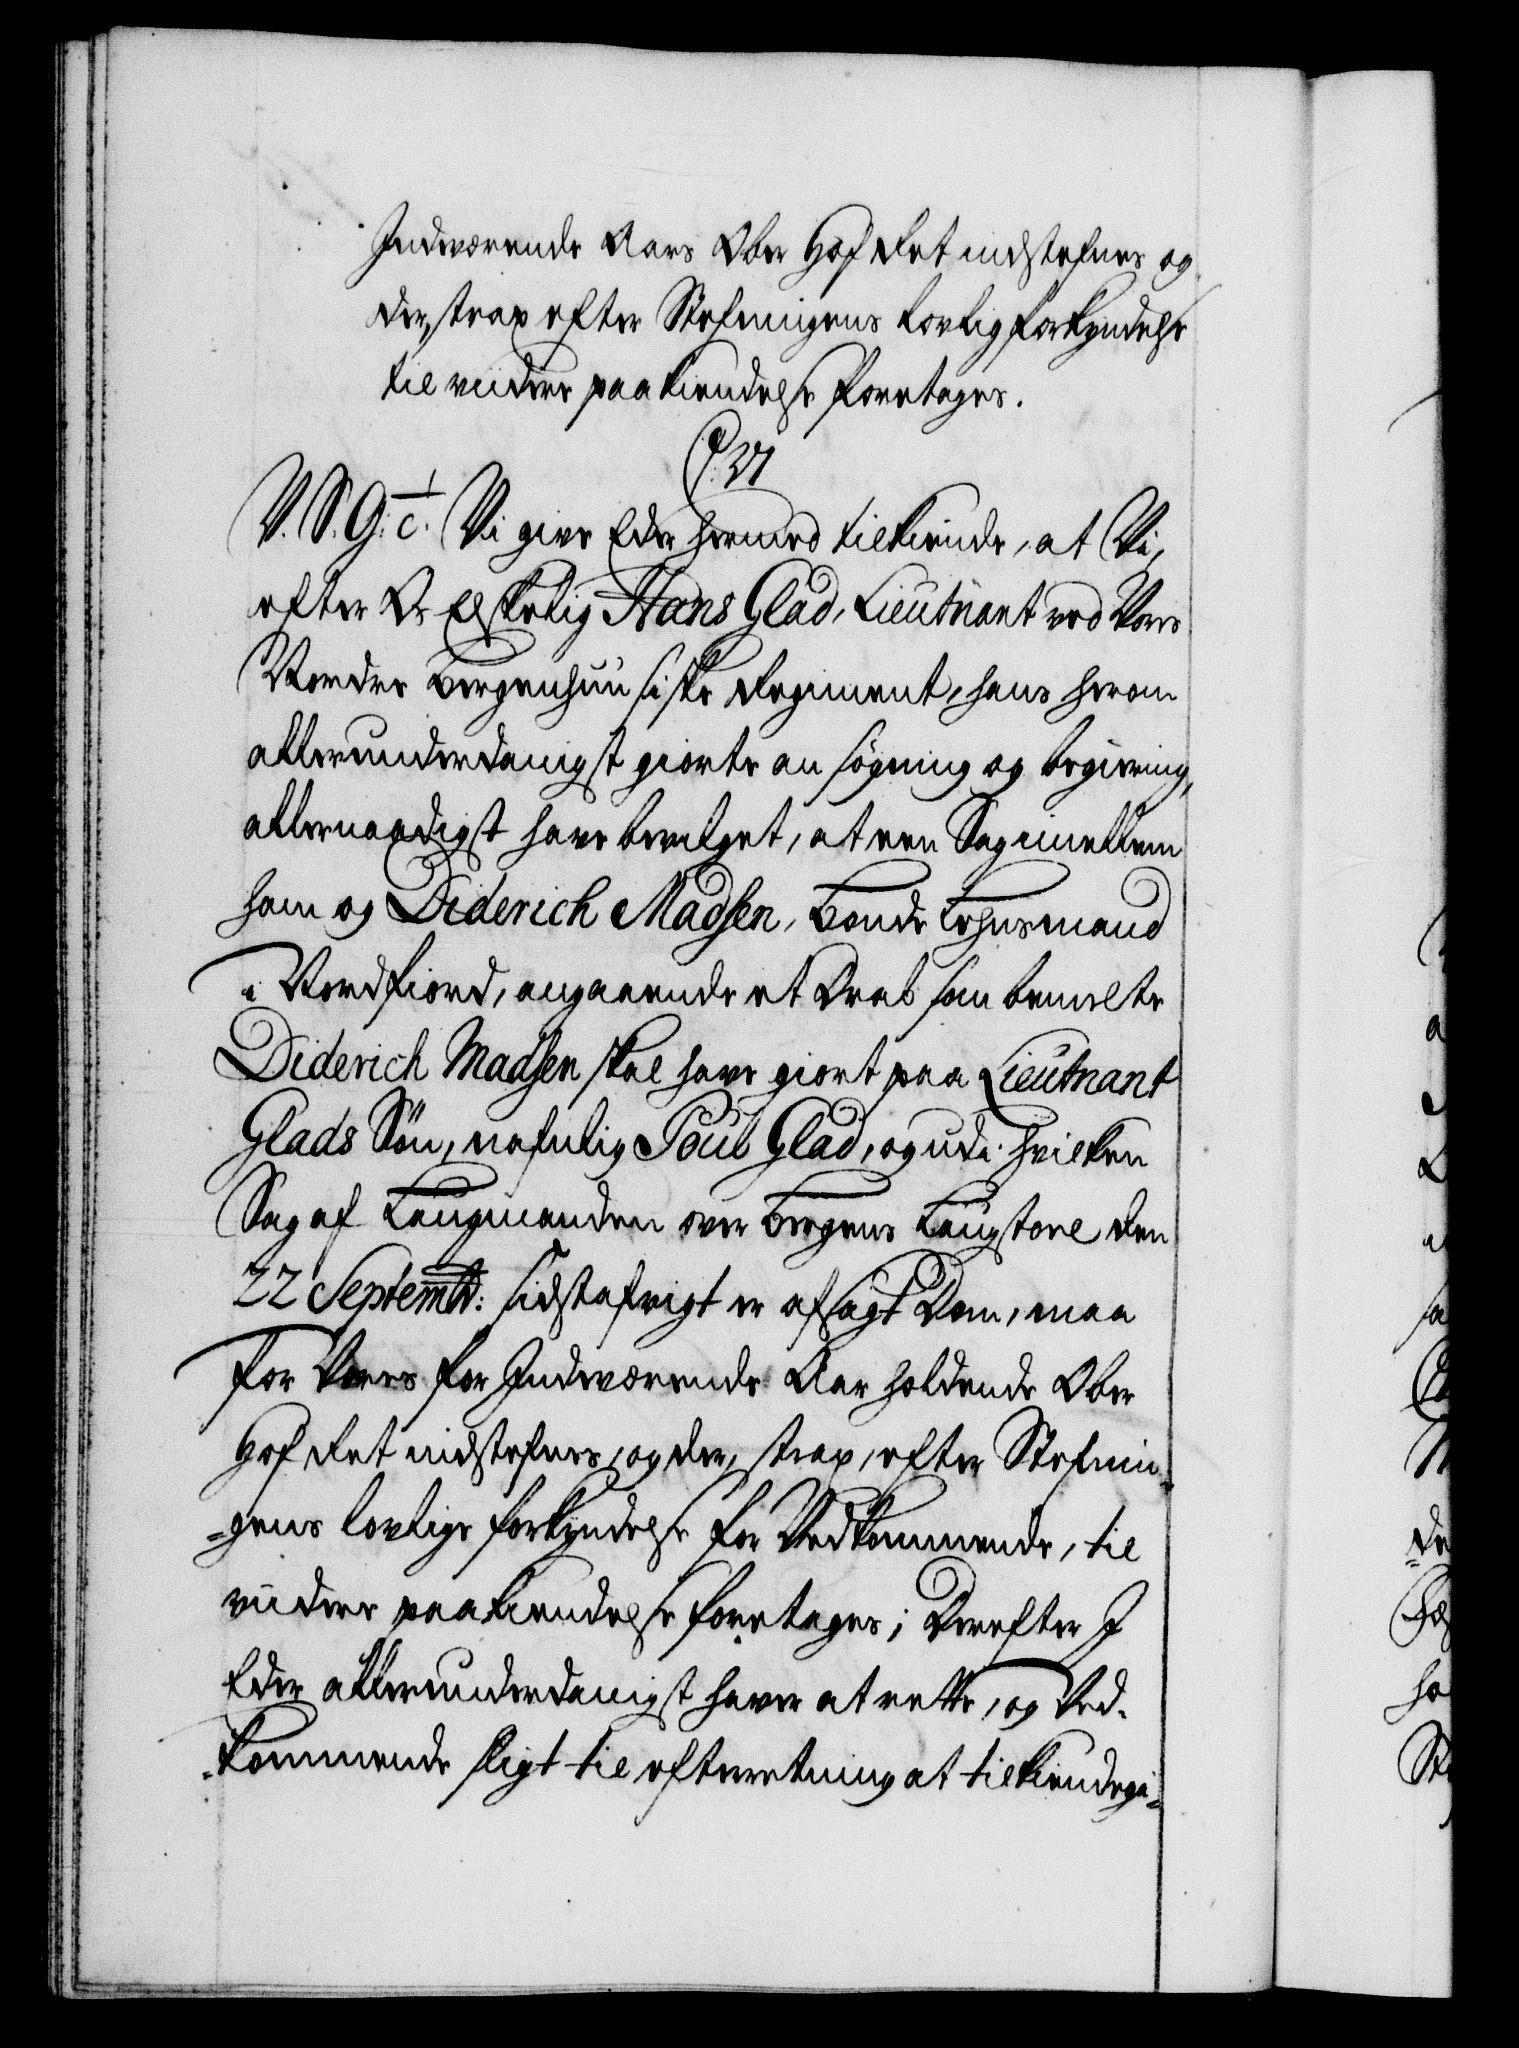 Indværende Aars Ober Hof Ret indstefnes og
der, strax efter Stefningens lovlig forkyndelse
til viidere paakiendelse foretages.
C. VI
V. S. G. c. Vi give Eder hermed tilkiende, at Vi,
efter Os Elskelig Hans Glad, Lieutnant ved Vores
Nordre Bergenhuusiske Regiment, hans herom
allerunderdanigst giorte ansøgning og begiering,
allernaadigst have bevilget, at een Sag imellem
ham og Diderich Madsen, Bonde Lehnsmand
i Nordfiord, angaaende et Drab som bemelte
Diderich Madsen skal have giort paa Lieutnant
Glads Søn, nafnlig Poul Glad, og udi hvilken
Sag af Laugmanden over Bergens Laugstoel den
22 Septembr: sidstafvigt er afsagt Dom, maa
for Vores for Indværende Aar holdende Ober
Hof Ret indstefnes, og der, strax, efter Stefnin-
-gens lovlige forkyndelse for Vedkommende, til
viidere paakiendelse foretages; Derefter I
Eder allerunderdanigst haver at rette, og Ved-
-kommende sligt til efterretning at tilkiendegi-